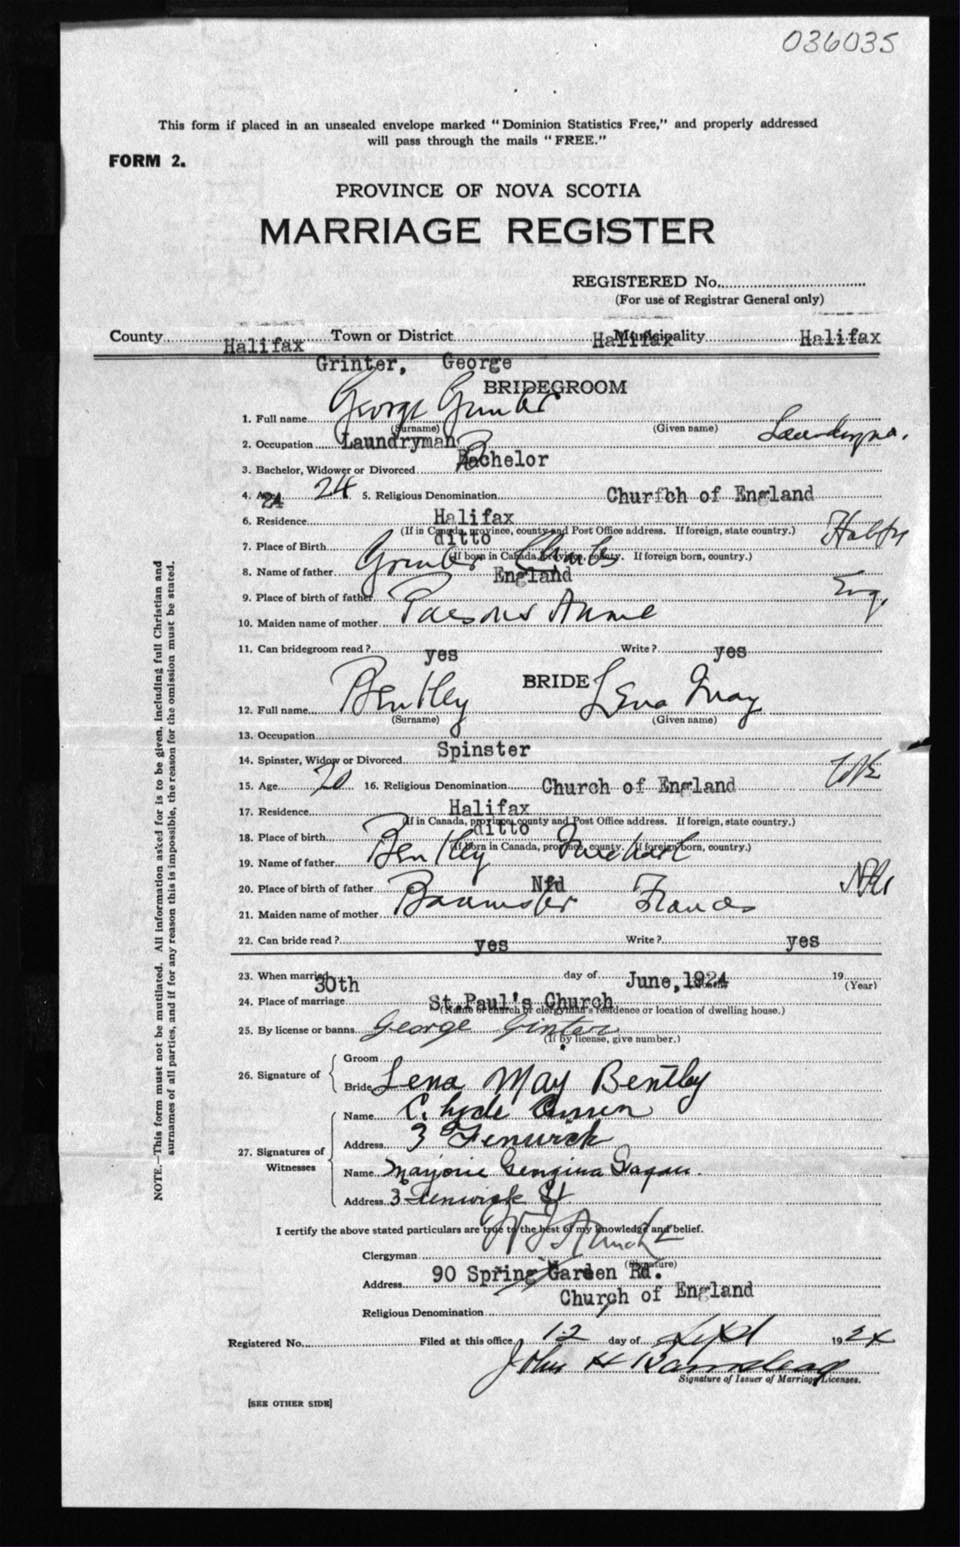 036035
This form if placed in an unsealed envelope marked "Dominion Statistics Free," and properly addressed
will pass through the mails "FREE."
FORM 2.
PROVINCE OF NOVA SCOTIA
MARRIAGE REGISTER
REGISTERED No.
(For use of Registrar General only)
County Halifax Town or District Halifax Municipality Halifax
Grinter, George
BRIDEGROOM
1. Full name George Grinter
(Surname) (Given name)
2. Occupation Laundryman Laundryman.
3. Bachelor, Widower or Divorced Bachelor
4. Age 24 24 5. Religious Denomination Church of England
6. Residence Halifax
(If in Canada, province, county and Post Office address. If foreign, state country.)
7. Place of Birth ditto Halfx
(If born in Canada, province, county. If foreign born, country.)
8. Name of father Grinter
9. Place of birth of father England Eng.
10. Maiden name of mother Parsons Annie
11. Can bridegroom read? yes Write? yes
BRIDE
12. Full name Bentley Lena May
(Surname) (Given name)
13. Occupation
14. Spinster, Widow or Divorced Spinster
15. Age 20 16. Religious Denomination Church of England
17. Residence Halifax
(If in Canada, province, county and Post Office address. If foreign, state country.)
18. Place of birth ditto
(If born in Canada, province, county. If foreign born, country.)
19. Name of father Bentley Michael
20. Place of birth of father Nfd
21. Maiden name of mother Frances
22. Can bride read? yes Write? yes
23. When married 30th day of June, 1924 19
(Year)
24. Place of marriage St.Paul's Church
(Name of church or clergyman's residence or location of dwelling house.)
25. By license or banns George Ginter
(If by license, give number.)
26. Signature of { Groom
Bride Lena May Bentley
27. Signatures of Witnesses { Name C. Lyde
Address 3 Fenwick
Name Marjorie Georgina
Address 3 Fenwick St
I certify the above stated particulars are true to the best of my knowledge and belief.
Clergyman
(Signature)
Address 90 Spring Garden Rd.
Religious Denomination Church of England
Registered No. Filed at this office 12 day of Sept 1924
John H Barnstead
Signature of Issuer of Marriage Licenses.
[SEE OTHER SIDE]
NOTE.—This form must not be mutilated. All information asked for is to be given, including full Christian and
surnames of all parties, and if for any reason this is impossible, the reason for the omission must be stated.